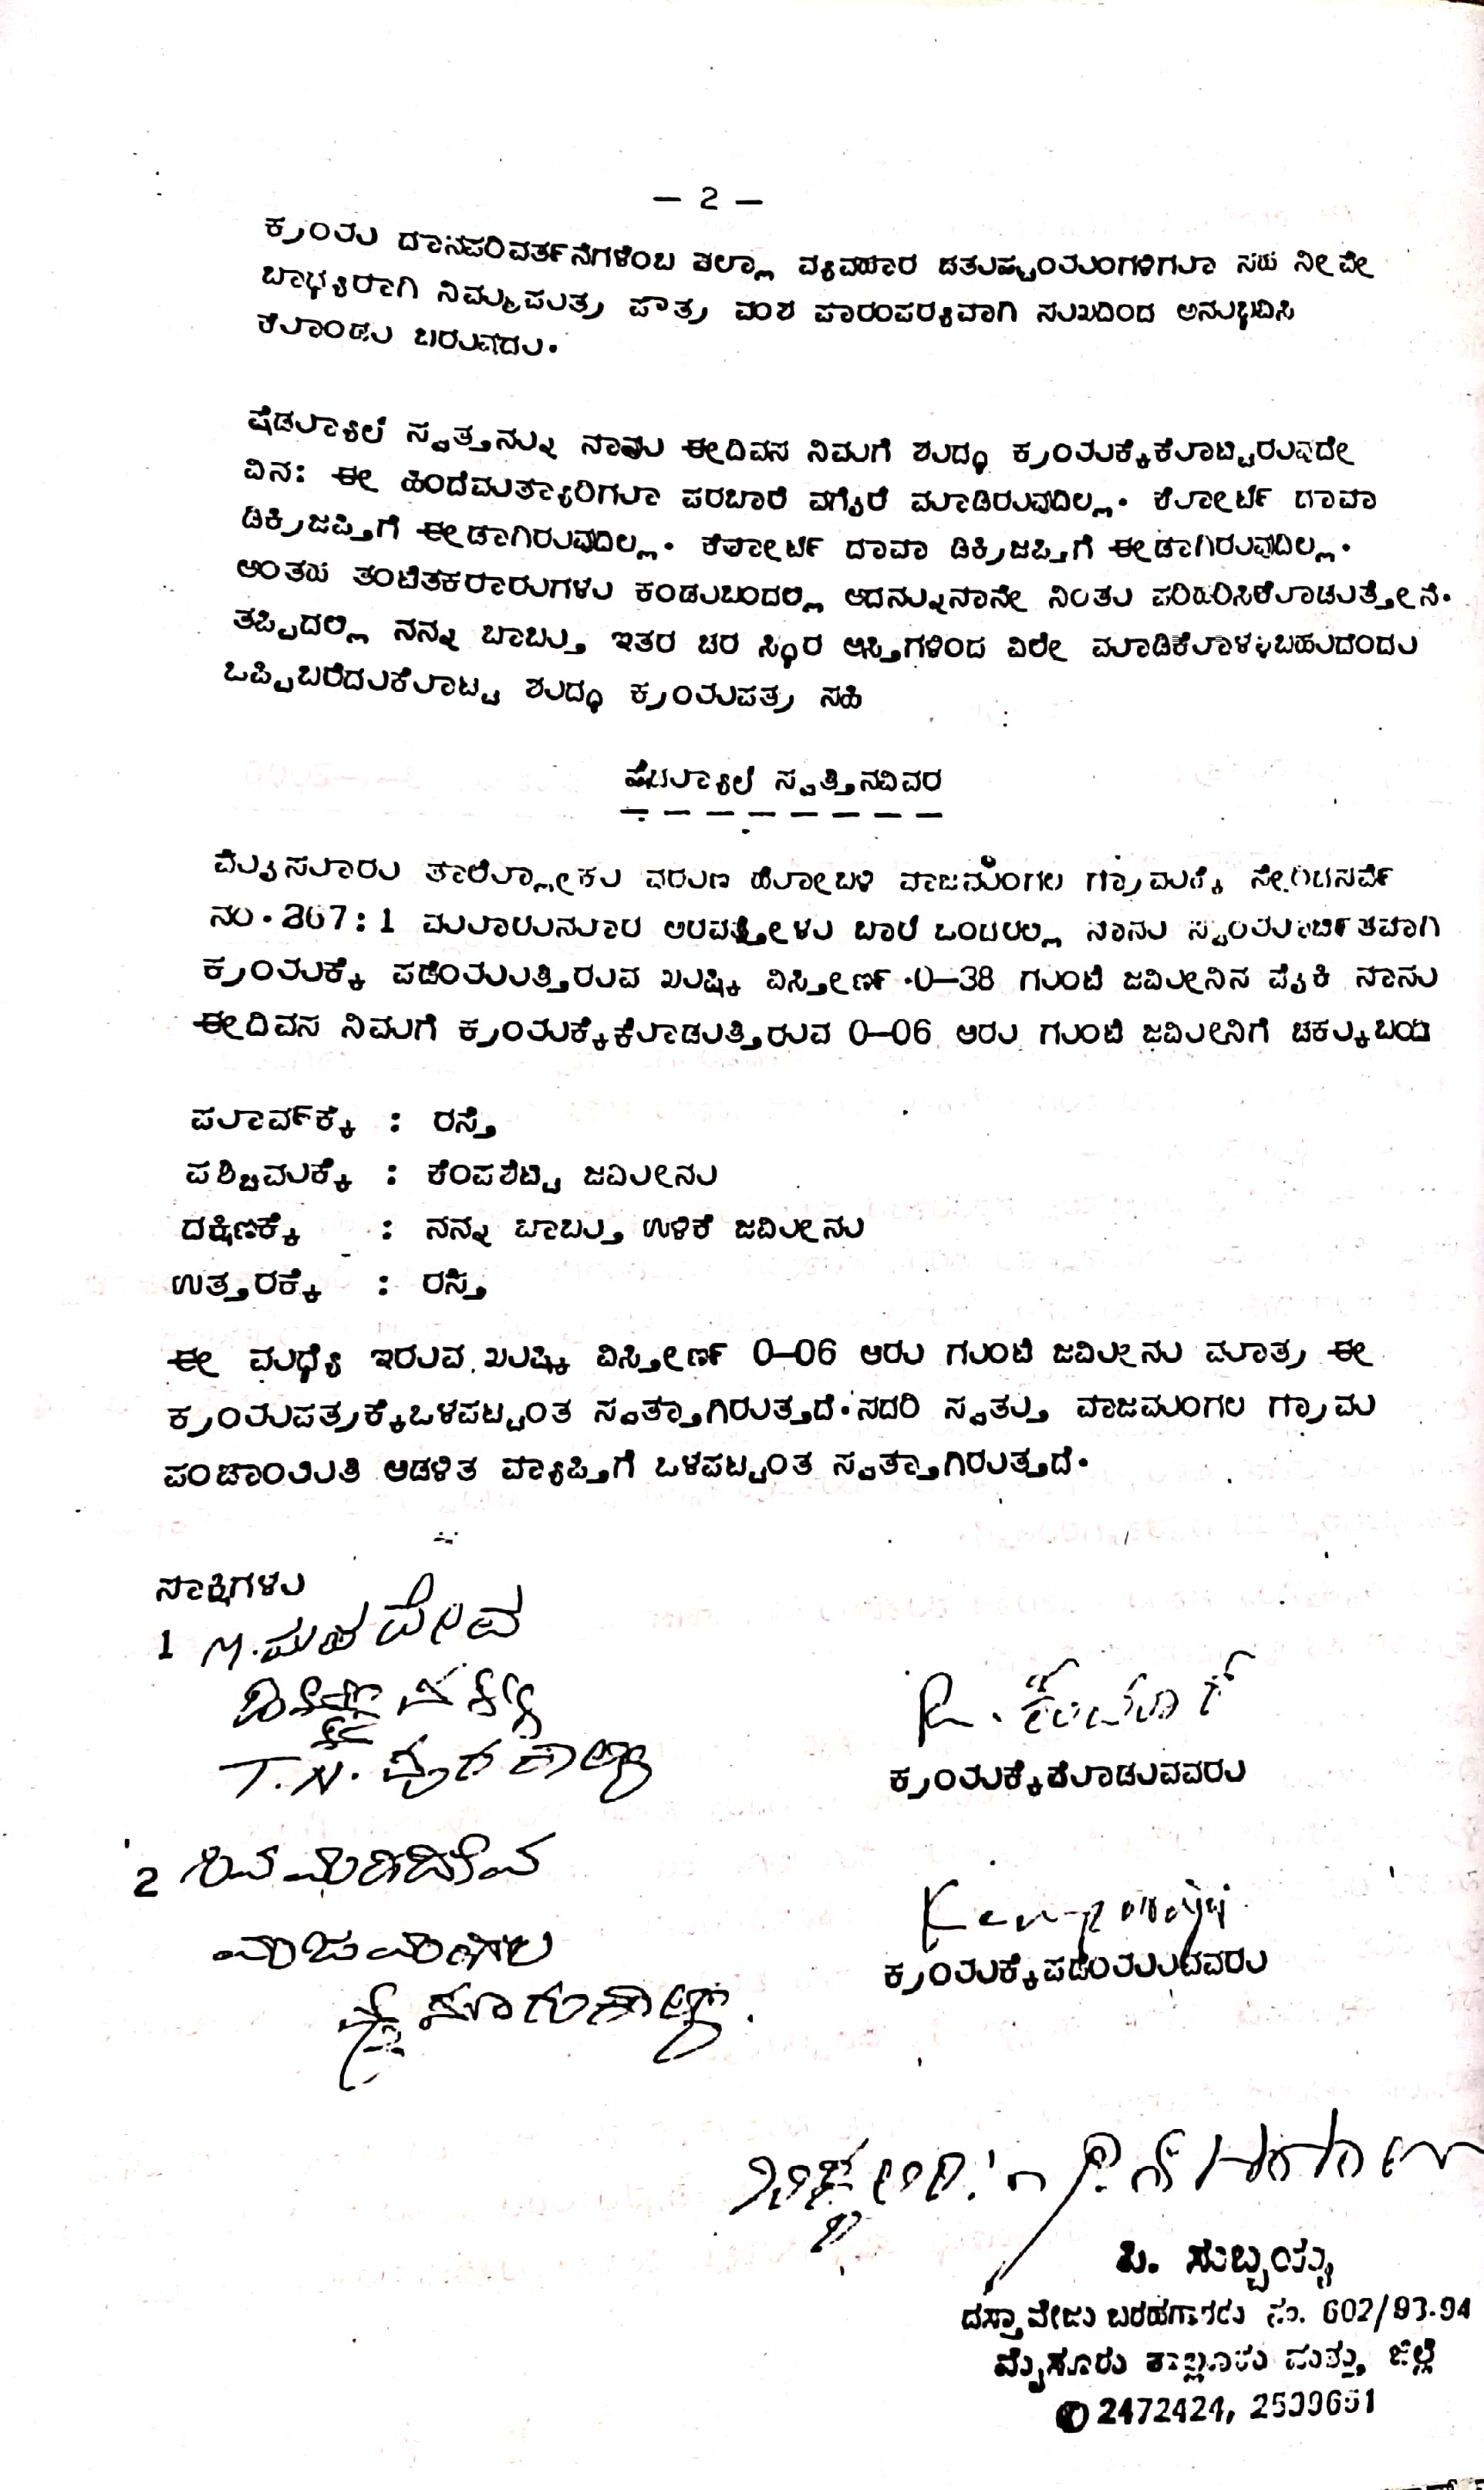 — 2 —
ಕ್ರಯ ದಾನಪರಿವರ್ತನೆಗಳೆಂಬ ಎಲ್ಲಾ ವ್ಯವಹಾರ ಚತುಷ್ಟಯಂಗಳಿಗೂ ಸಹ ನೀವೇ
ಬಾಧ್ಯರಾಗಿ ನಿಮ್ಮಪುತ್ರ ಪೌತ್ರ ವಂಶ ಪಾರಂಪರ್ಯವಾಗಿ ಸುಖದಿಂದ ಅನುಭವಿಸಿ
ಕೊಂಡು ಬರುವುದು.
ಷೆಡ್ಯೂಲ್ ಸ್ವತ್ತನ್ನು ನಾವು ಈದಿವಸ ನಿಮಗೆ ಶುದ್ಧ ಕ್ರಯಕ್ಕೆಕೊಟ್ಟಿರುವುದೇ
ವಿನಃ ಈ ಹಿಂದೆಮತ್ಯಾರಿಗೂ ಪರಬಾರೆ ವಗೈರೆ ಮಾಡಿರುವುದಿಲ್ಲ. ಕೋರ್ಟ್ ದಾವಾ
ಡಿಕ್ರಿಜಪ್ತಿಗೆ ಈಡಾಗಿರುವುದಿಲ್ಲ. ಕೋರ್ಟ್ ದಾವಾ ಡಿಕ್ರಿಜಪ್ತಿಗೆ ಈಡಾಗಿರುವುದಿಲ್ಲ.
ಅಂತಹ ತಂಟೆತಕರಾರುಗಳು ಕಂಡುಬಂದಲ್ಲಿ ಅದನ್ನುನಾನೇ ನಿಂತು ಪರಿಹರಿಸಿಕೊಡುತ್ತೇನೆ.
ತಪ್ಪಿದಲ್ಲಿ ನನ್ನ ಬಾಬ್ತು ಇತರ ಚರ ಸ್ಥಿರ ಆಸ್ತಿಗಳಿಂದ ವಿಲೇ ಮಾಡಿಕೊಳ್ಳಬಹುದೆಂದು
ಒಪ್ಪಿಬರೆದುಕೊಟ್ಟ ಶುದ್ಧ ಕ್ರಯಪತ್ರ ಸಹಿ
ಷೆಡ್ಯೂಲ್ ಸ್ವತ್ತಿನವಿವರ
ಮೈಸೂರು ತಾಲ್ಲೂಕು ವರುಣ ಹೋಬಳಿ ವಾಜಮಂಗಲ ಗ್ರಾಮಕ್ಕೆ ಸೇರಿದಸರ್ವೆ
ನಂ.367:1 ಮೂರುನೂರ ಅರವತ್ತೇಳು ಬಾರೆ ಒಂದರಲ್ಲಿ ನಾನು ಸ್ವಯಾರ್ಜಿತವಾಗಿ
ಕ್ರಯಕ್ಕೆ ಪಡೆಯುತ್ತಿರುವ ಖುಷ್ಕಿ ವಿಸ್ತೀರ್ಣ 0-38 ಗುಂಟೆ ಜಮೀನಿನ ಪೈಕಿ ನಾನು
ಈದಿವಸ ನಿಮಗೆ ಕ್ರಯಕ್ಕೆಕೊಡುತ್ತಿರುವ 0-06 ಆರು ಗುಂಟೆ ಜಮೀನಿಗೆ ಚಕ್ಕುಬಂದಿ
ಪೂರ್ವಕ್ಕೆ : ರಸ್ತೆ
ಪಶ್ಚಿಮಕ್ಕೆ : ಕೆಂಪಶೆಟ್ಟಿ ಜಮೀನು
ದಕ್ಷಿಣಕ್ಕೆ : ನನ್ನ ಬಾಬ್ತು ಉಳಿಕೆ ಜಮೀನು
ಉತ್ತರಕ್ಕೆ : ರಸ್ತೆ
ಈ ಮಧ್ಯೆ ಇರುವ ಖುಷ್ಕಿ ವಿಸ್ತೀರ್ಣ 0-06 ಆರು ಗುಂಟೆ ಜಮೀನು ಮಾತ್ರ ಈ
ಕ್ರಯಪತ್ರಕ್ಕೆಒಳಪಟ್ಟಂತ ಸ್ವತ್ತಾಗಿರುತ್ತದೆ.ಸದರಿ ಸ್ವತ್ತು ವಾಜಮಂಗಲ ಗ್ರಾಮ
ಪಂಚಾಯಿತಿ ಆಡಳಿತ ವ್ಯಾಪ್ತಿಗೆ ಒಳಪಟ್ಟಂತ ಸ್ವತ್ತಾಗಿರುತ್ತದೆ.
ಸಾಕ್ಷಿಗಳು
1 M.ಮಹದೇವ
R. ಕುಮಾರ್
T.N.
ಕ್ರಯಕ್ಕೆಕೊಡುವವರು
2
ವಾಜಮಂಗಲ
ಕ್ರಯಕ್ಕೆಪಡೆಯುವವರು
ಪಿ. ಸುಬ್ಬಯ್ಯ
ದಸ್ತಾವೇಜು ಬರಹಗಾರರು ನಂ. 602/93-94
ಮೈಸೂರು ತಾಲ್ಲೂಕು ಮತ್ತು ಜಿಲ್ಲೆ
✆ 2472424, 2509651